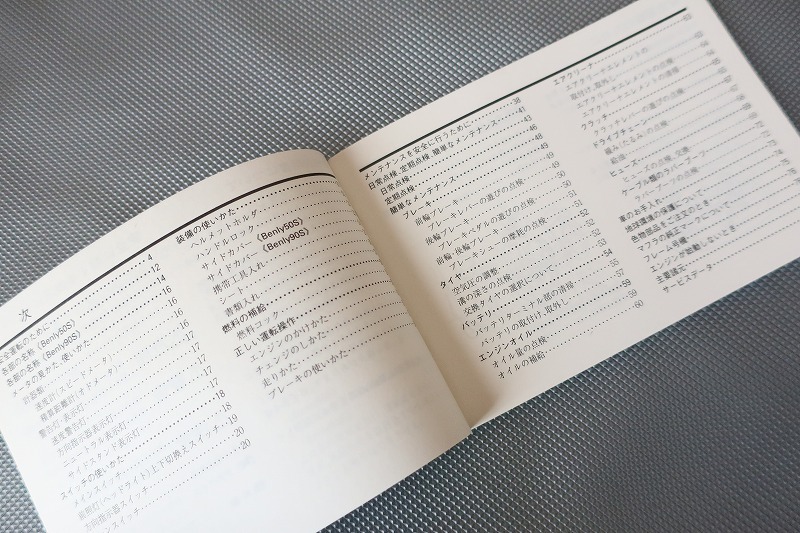 次
安全運転のために 4
各部の名称 (Benly50S) 12
各部の名称 (Benly90S) 14
メータの見かた、使いかた 16
計器盤 16
速度計 (スピードメータ) 16
積算距離計 (オドメータ) 17
警告灯・表示灯 17
速度警告灯 17
方向指示器表示灯 17
ニュートラル表示灯 17
サイドスタンド表示灯 18
スイッチの使いかた 18
メインスイッチ 18
前照灯(ヘッドライト)上下切換えスイッチ 19
方向指示器スイッチ 20
ンスイッチ 20
装備の使いかた
ヘルメットホルダ
ハンドルロック
サイドカバー (Benly50S)
サイドカバー (Benly90S)
携帯工具入れ
シート
書類入れ
燃料の補給
燃料コック
正しい運転操作
エンジンのかけかた
チェンジのしかた
走りかた
ブレーキの使いかた
メンテナンスを安全に行うために 38
日常点検、定期点検、簡単なメンテナンス 41
日常点検 43
定期点検 46
簡単なメンテナンス 48
ブレーキ 49
前輪ブレーキ 49
ブレーキレバーの遊びの点検 49
後輪ブレーキ 50
ブレーキペダルの遊びの点検 50
前輪・後輪ブレーキ 51
ブレーキシューの摩耗の点検 51
タイヤ 52
空気圧の調整 52
溝の深さの点検 53
交換タイヤの選択について 54
バッテリ 55
バッテリターミナル部の清掃 55
バッテリの取付け、取外し 57
エンジンオイル 59
オイル量の点検 59
オイルの補給 60
エアクリーナ 63
エアクリーナエレメントの
取付け、取外し
エアクリーナエレメントの点検
エアクリーナエレメントの清掃
クラッチ
クラッチレバーの遊びの点検
ドライブチェーン
緩み(たるみ)の点検
給油
ヒューズ
ヒューズの点検、交換
ケーブル類のラバーブーツ
ラバーブーツの点検
車のお手入れ
地球環境の保護について
色物部品をご注文のとき
マフラの純正マークについて
フレーム号機
エンジンが始動しないとき
主要諸元
サービスデータ